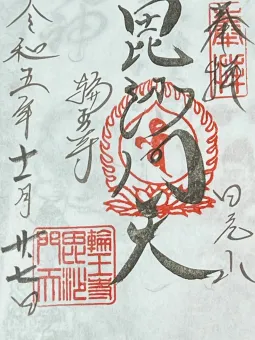 奉拝
日光山
毘沙門天
輪王寺
令和五年十一月廿七日
輪王寺
毘沙
門天